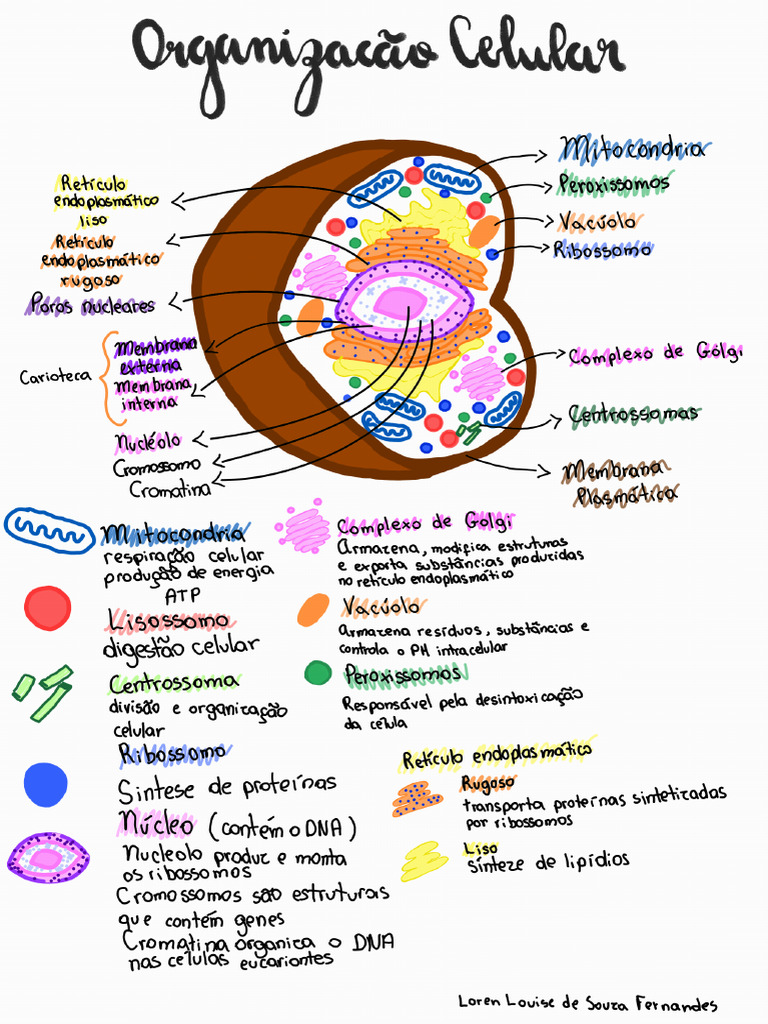 Organizacão Celular
Retículo
endoplasmático
liso
Retículo
endoplasmático
rugoso
Poros nucleares
Carioteca
Membrana
externa
membrana
interna
Nucléolo
Cromossomo
Cromatina
Mitocondria
Peroxissomos
Vacúolo
Ribossomo
Complexo de Golgi
Centrossomas
Membrana
Plasmática
Mitocondria
respiração celular
produção de energia
ATP
Lisossomo
digestão celular
Centrossoma
divisão e organização
celular
Ribossomo
Síntese de proteínas
Núcleo (contém o DNA)
Nucleolo produz e monta
os ribossomos
Cromossomos são estruturas
que contém genes
Cromatina organica o DNA
nas células eucariontes
Complexo de Golgi
Armazena, modifica estruturas
e exporta substâncias produzidas
no retículo endoplasmático
Vacúolo
Armazena resíduos, substâncias e
controla o PH intracelular
Peroxissomos
Responsável pela desintoxicação
da célula
Retículo endoplasmático
Rugoso
transporta proteínas sintetizadas
por ribossomos
Liso
sínteze de lipídios
Loren Louise de Souza Fernandes